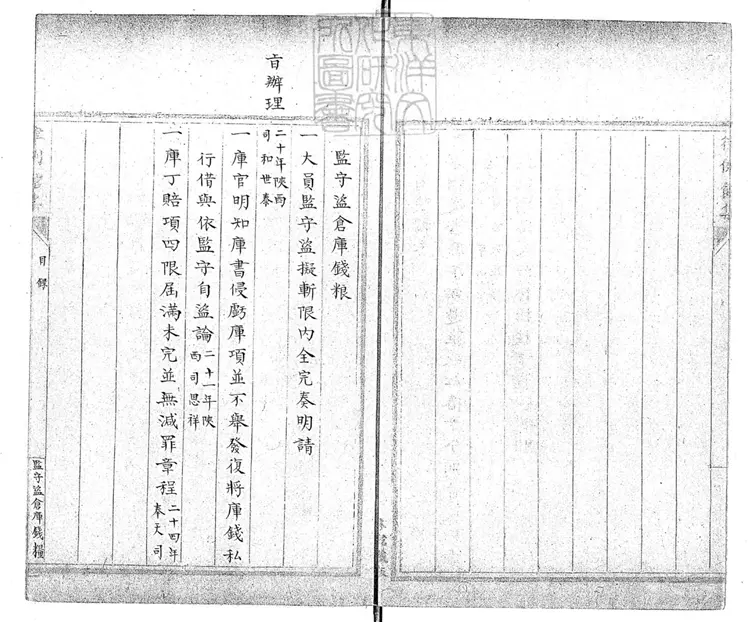 監守盜倉庫錢粮
一大員監守盜擬斬限内全完奏明請
旨辦理
二十年陝西
司和世泰
一庫官明知庫書侵虧庫項並不舉發復將庫錢私
行借與依監守自盜論
二十一年陝
西司恩祥
一庫丁賠項四限屆滿未完並無減罪章程
二十四年
奉天司
目錄
監守盜倉庫錢糧